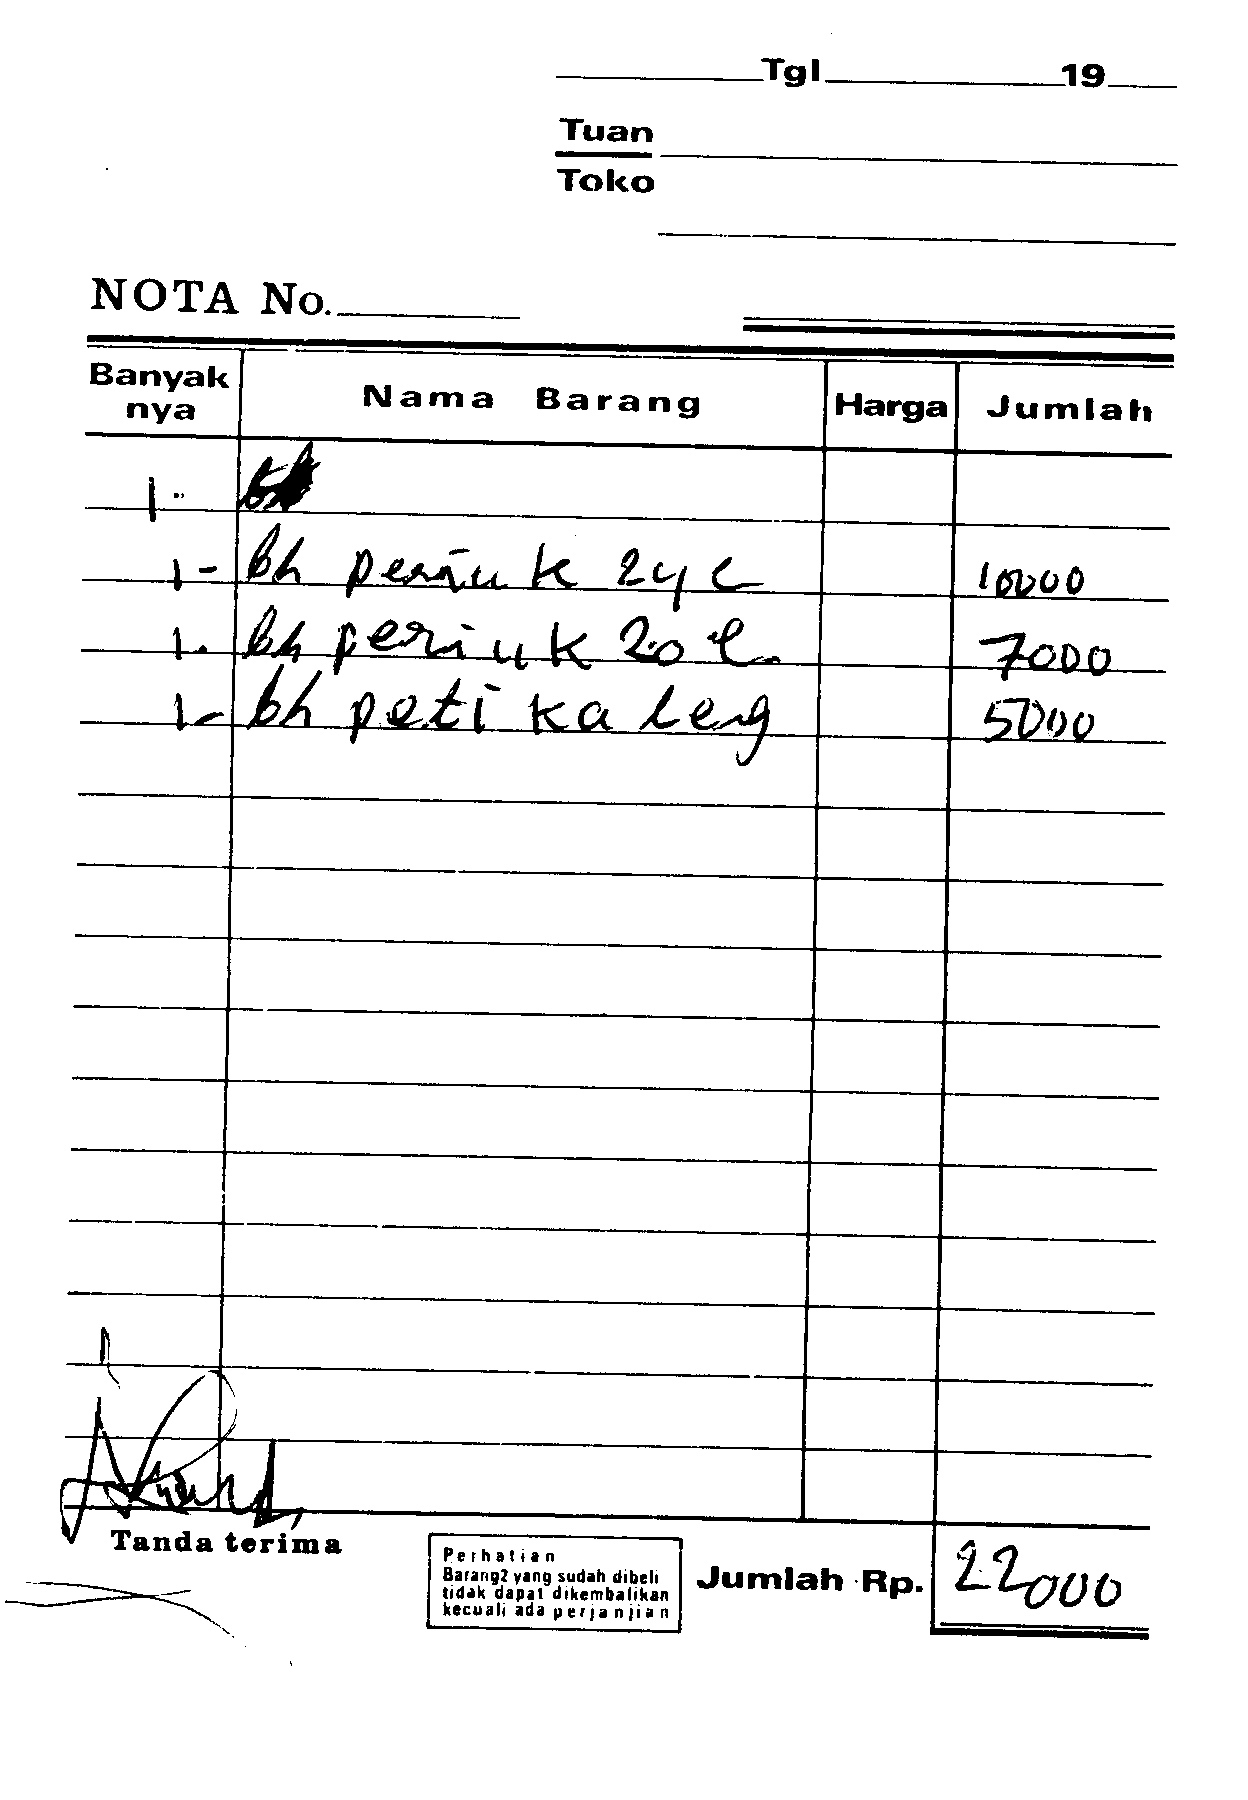 Tgl 19
Tuan
Toko
NOTA No.
Banyak nya Nama Barang Harga Jumlah
1-
1- bh periuk 24 c 10000
1. bh periuk 20 c 7000
1- bh peti kaleng 5000
Tanda terima
Perhatian
Barang2 yang sudah dibeli
tidak dapat dikembalikan
kecuali ada perjanjian
Jumlah Rp. 22000